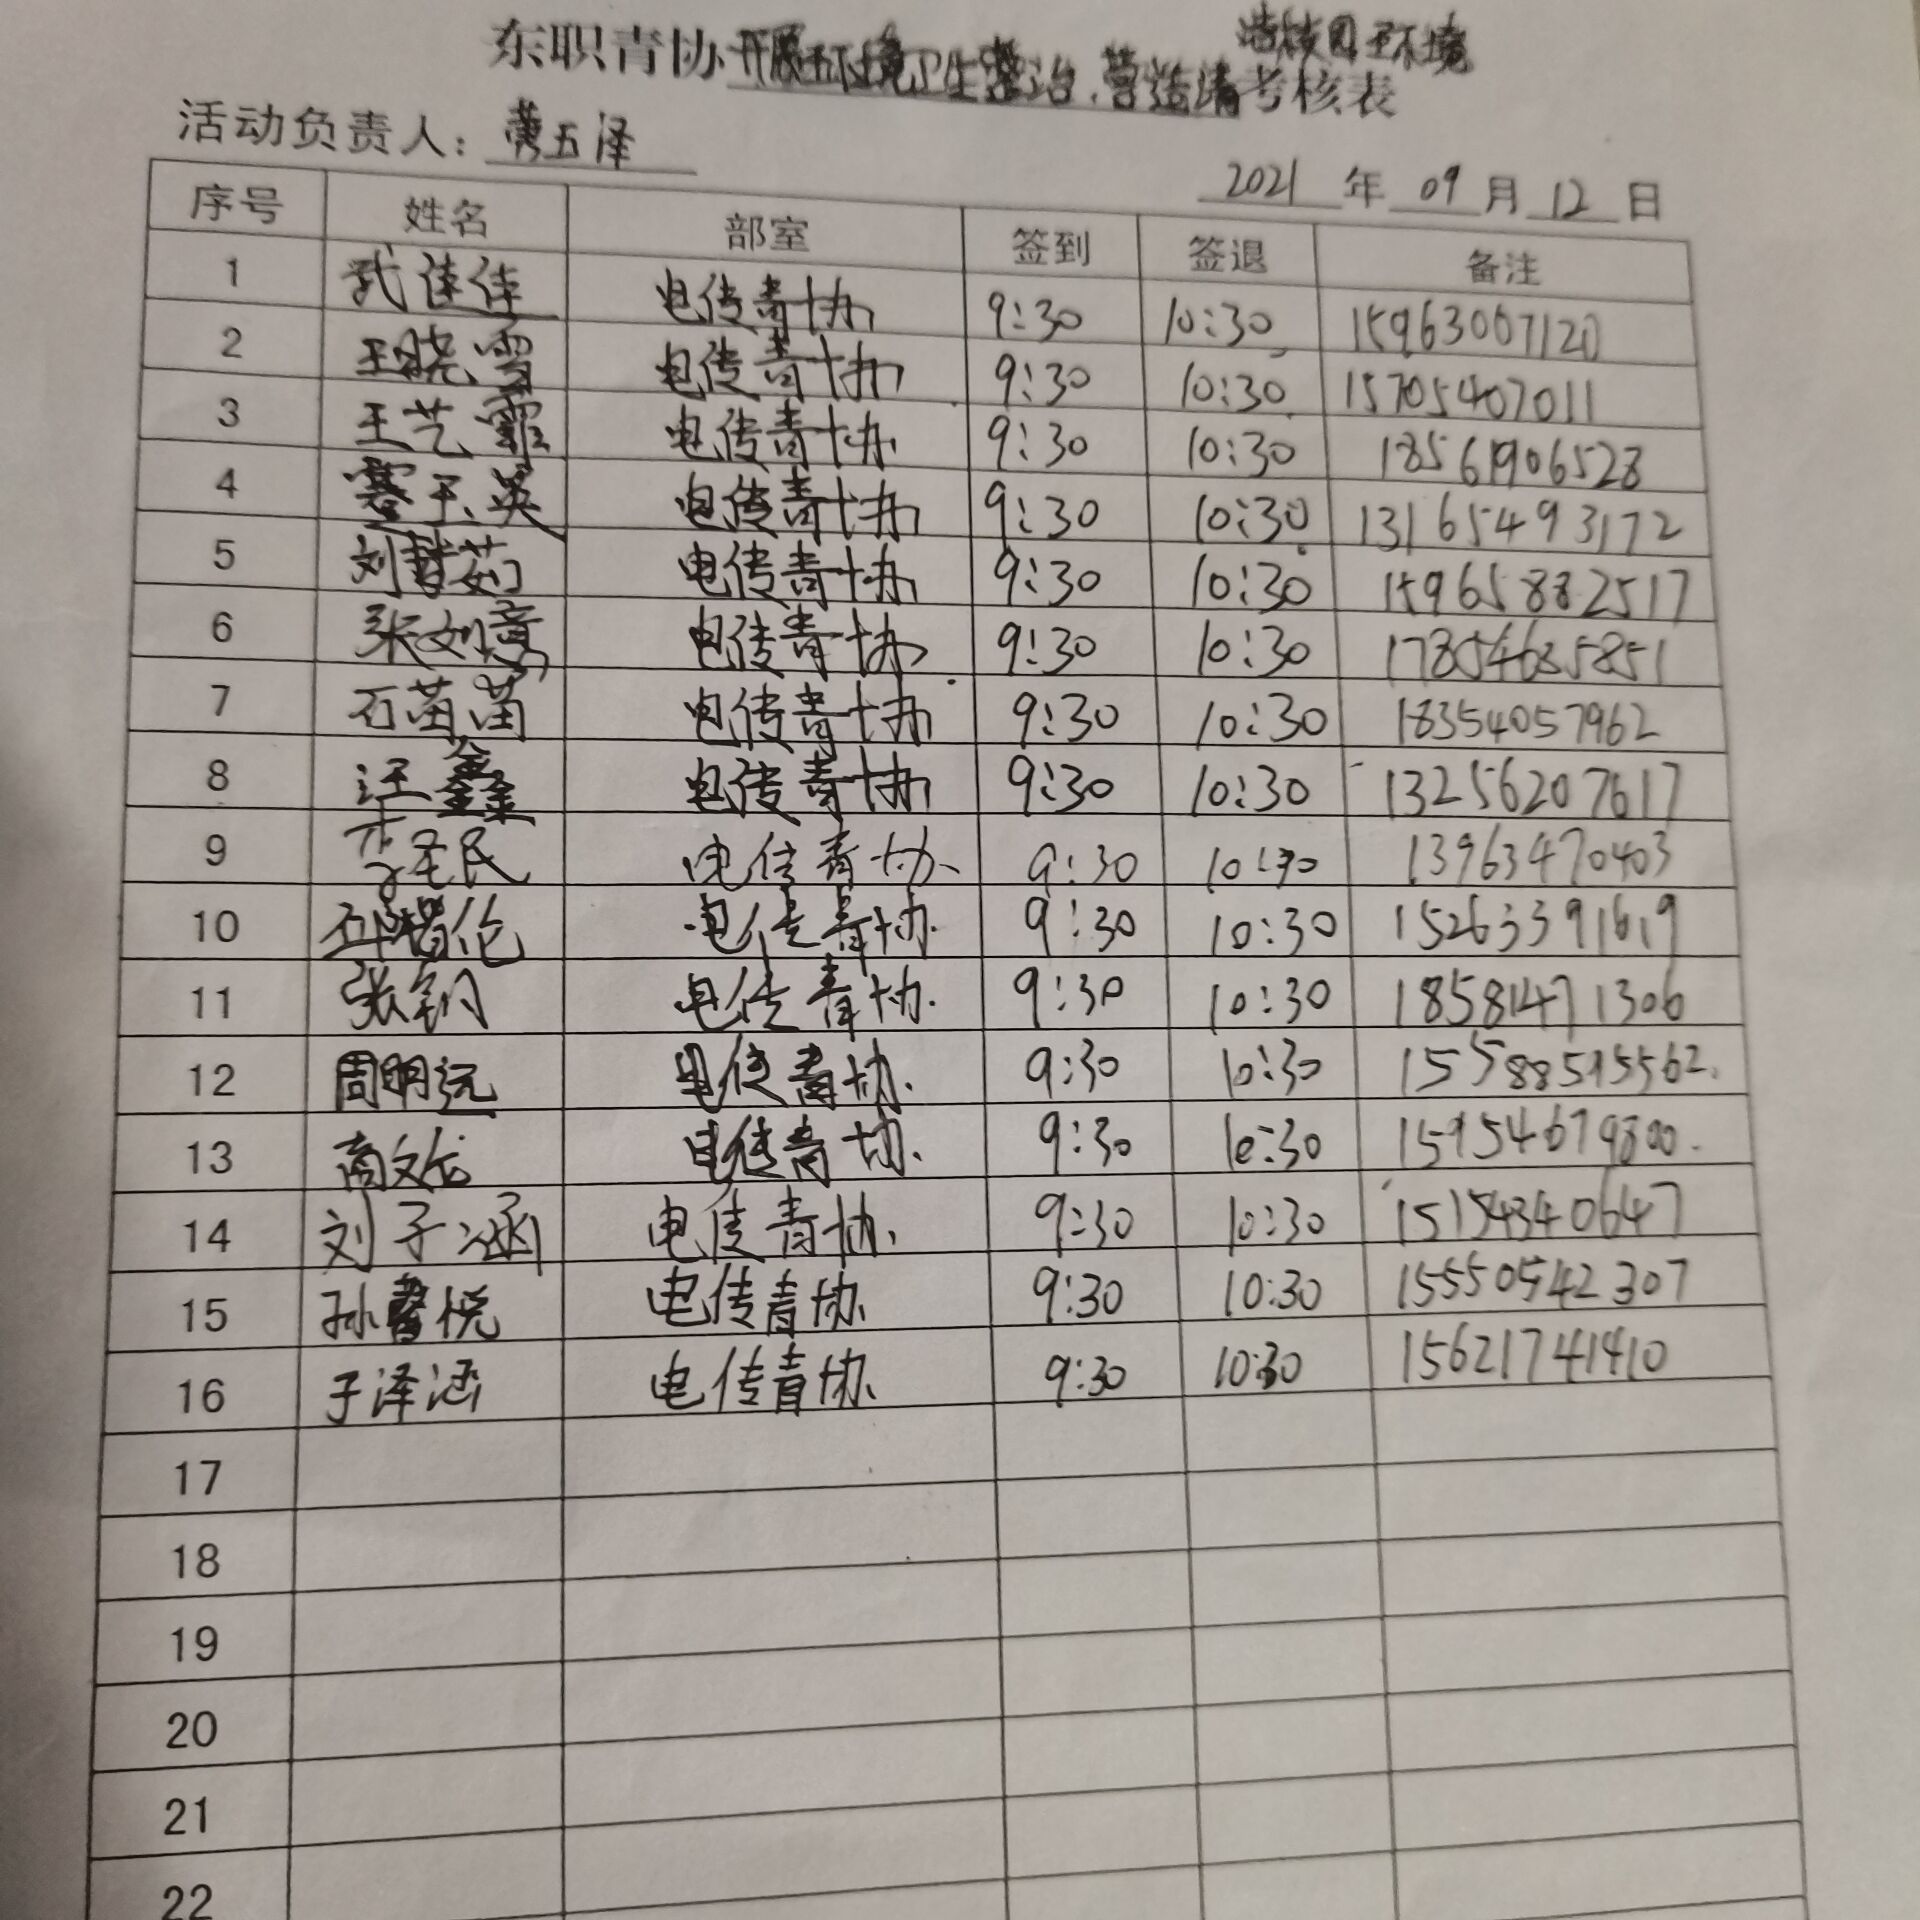 洁校园环境
东职青协开展环境卫生整治,营造清考核表
活动负责人: 五泽
2021 年 09 月 12 日
序号 姓名 部室 签到 签退 备注
1 武佳佳 电传青协 9:30 10:30 15963007120
2 王晓雪 电传青协 9:30 10:30 15705407011
3 王艺霏 电传青协 9:30 10:30 18561906528
4 骞玉英 电传青协 9:30 10:30 13165493172
5 刘慧茹 电传青协 9:30 10:30 15965882517
6 张刘 电传青协 9:30 10:30 17854685851
7 石苗苗 电传青协 9:30 10:30 18354057962
8 汪鑫 电传青协 9:30 10:30 13256207617
9 李圣民 电传青协 9:30 10:30 13963470403
10 伦 电传青协 9:30 10:30 15263391619
11 张钧 电传青协 9:30 10:30 18581471306
12 周明远 电传青协 9:30 10:30 15588515562.
13 商文龙 电传青协 9:30 10:30 15954679800.
14 刘子涵 电传青协 9:30 10:30 15154340647
15 孙馨悦 电传青协 9:30 10:30 15550542307
16 于泽涵 电传青协 9:30 10:30 15621741410
17
18
19
20
21
22